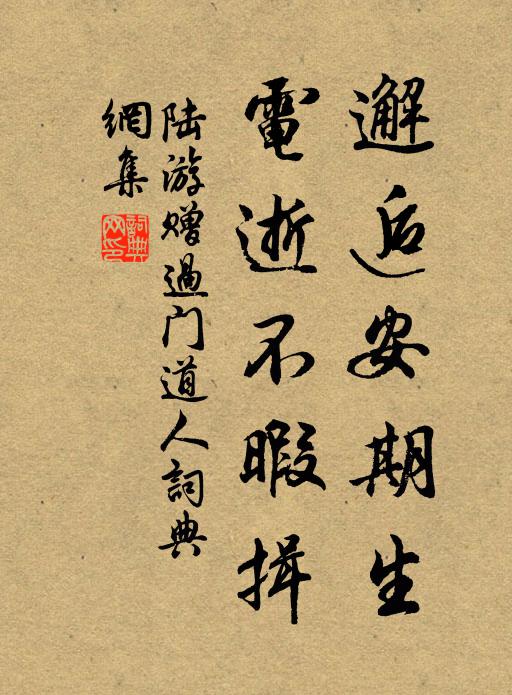 邂逅安期生
電逝不暇揖
陆游赠過门道人詞典
網集
詞典
网印